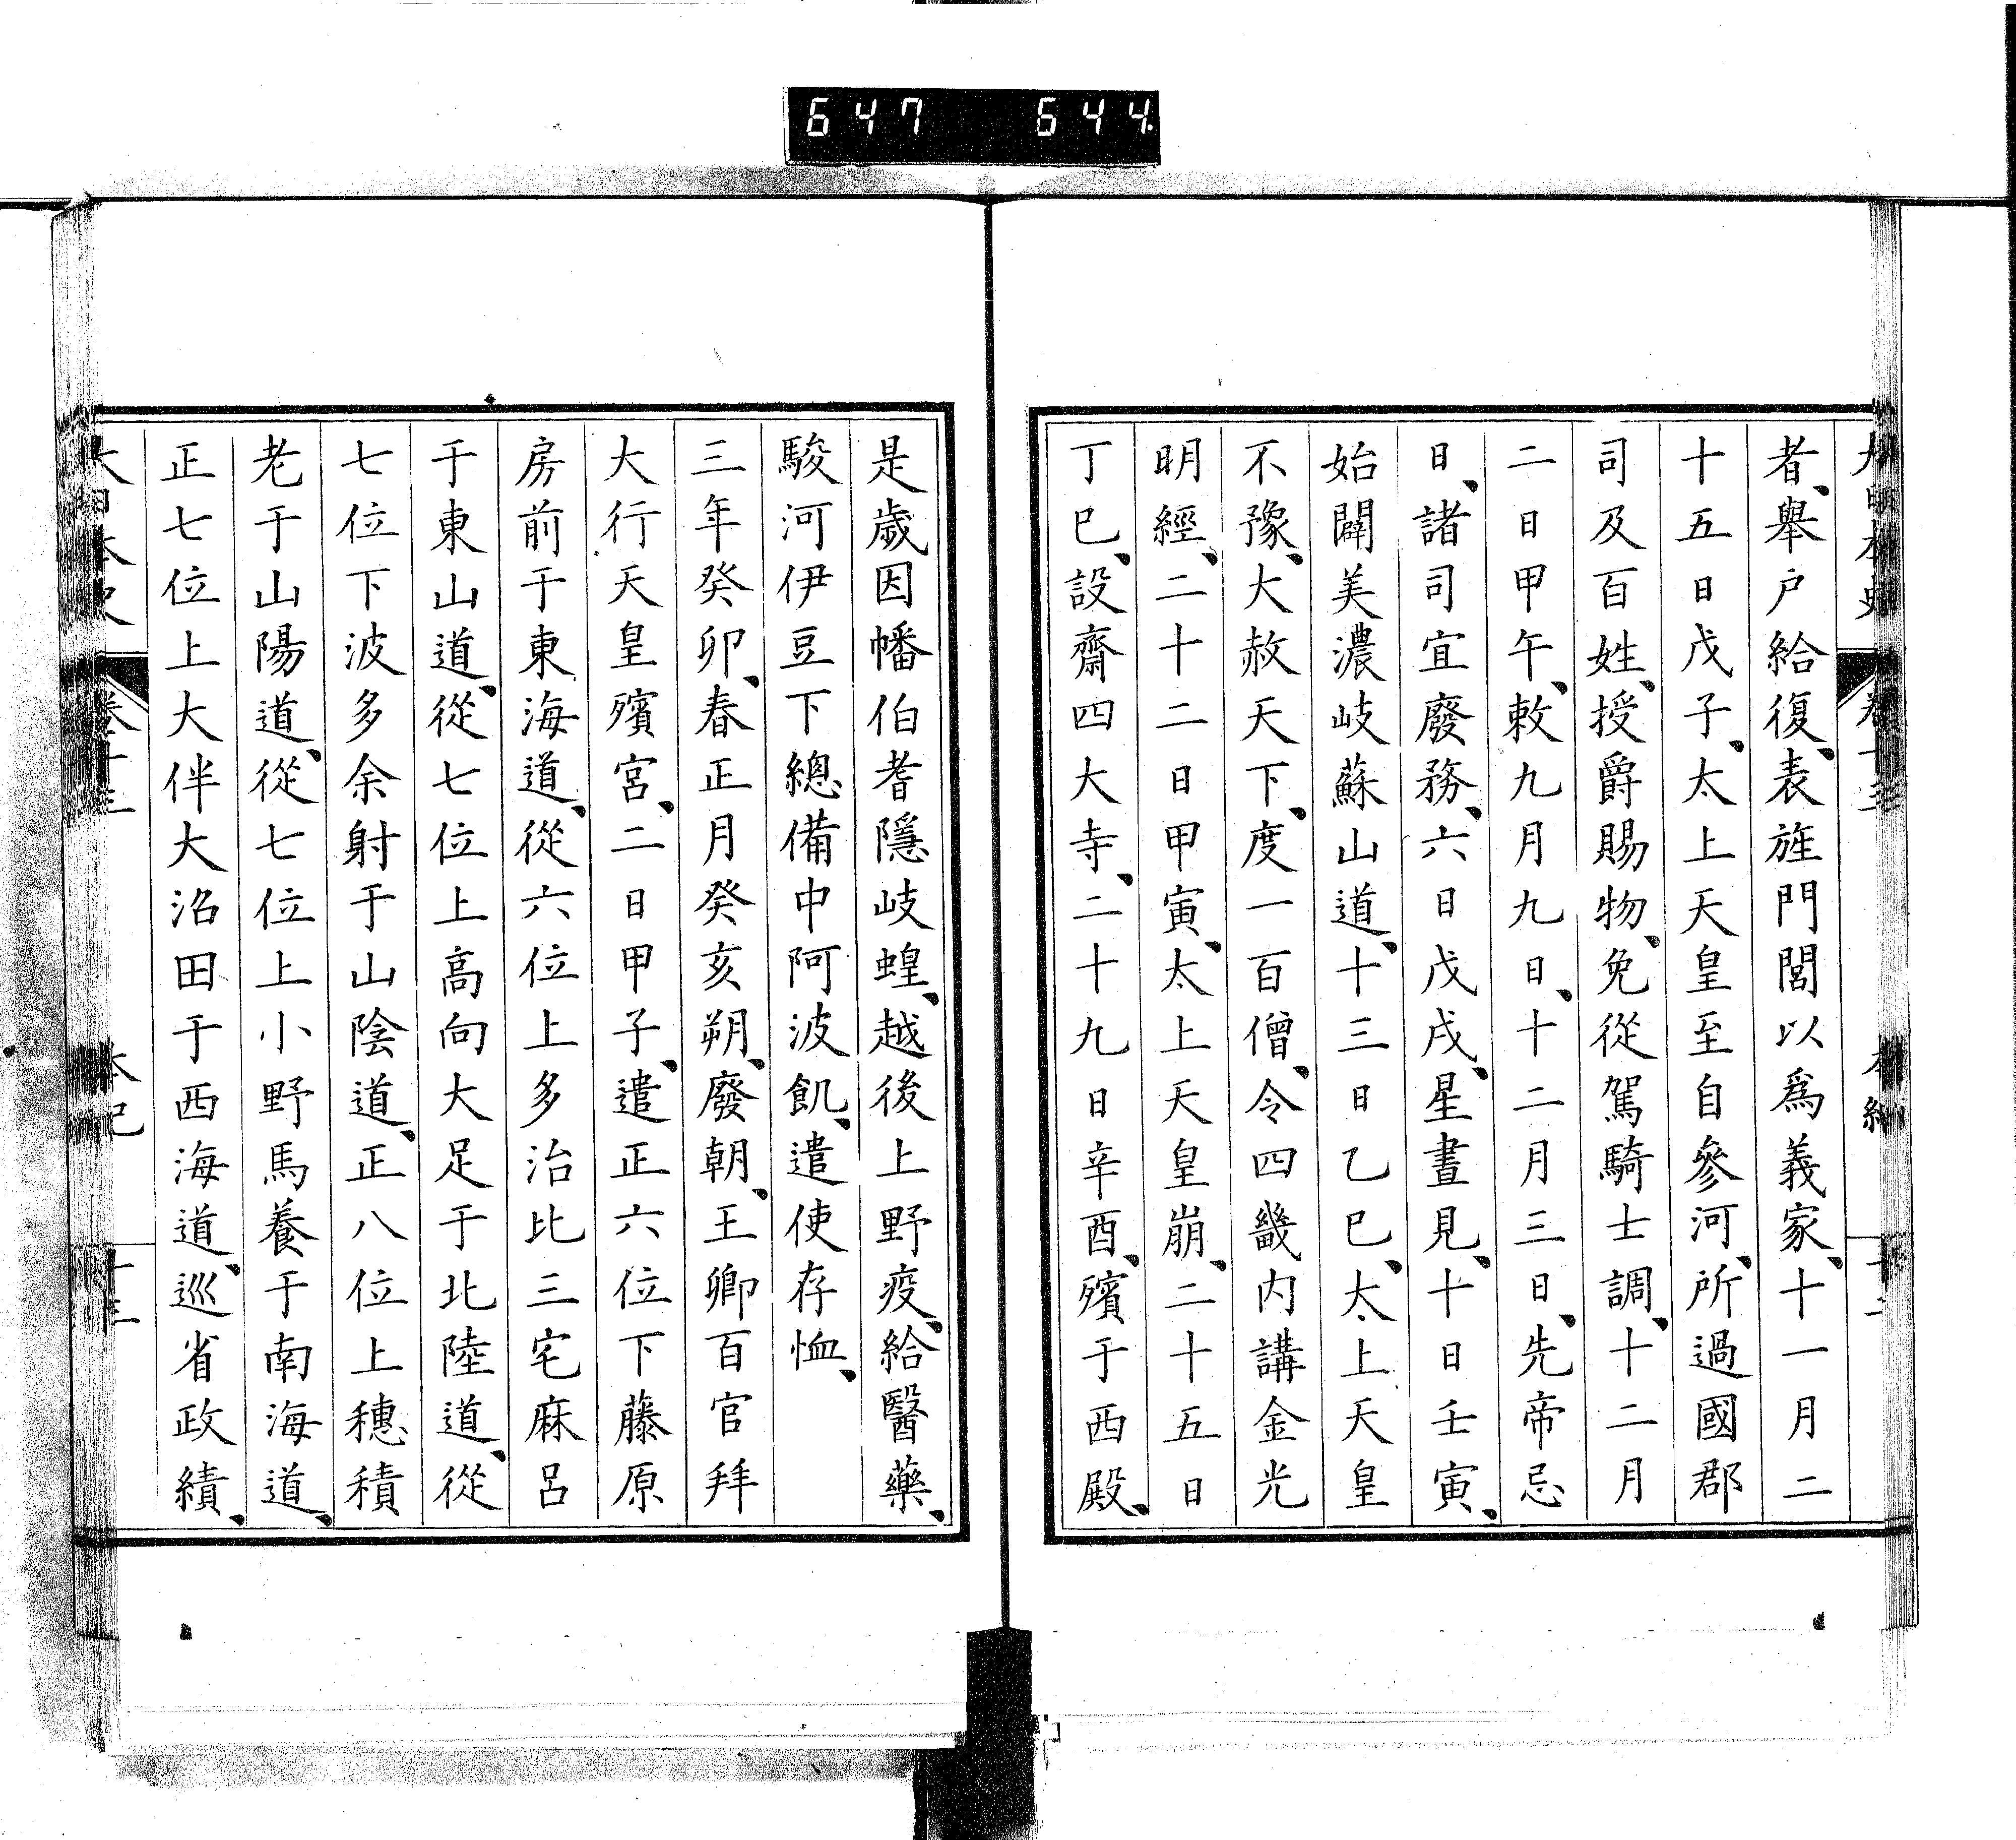 647 644
者、舉戶給復、表旌門閭以爲義家、十一月二
十五日戊子、太上天皇至自參河、所過國郡
司及百姓、授爵賜物、免從駕騎士調、十二月
二日甲午、敕九月九日、十二月三日、先帝忌
日、諸司宜廢務、六日戊戌、星晝見、十日壬寅、
始闢美濃岐蘇山道、十三日乙巳、太上天皇
不豫、大赦天下、度一百僧、令四畿内講金光
明經、二十二日甲寅、太上天皇崩、二十五日
丁巳、設齋四大寺、二十九日辛酉、殯于西殿、
是歲因幡伯耆隱岐蝗、越後上野疫、給醫藥、
駿河伊豆下總備中阿波飢、遣使存恤、
三年癸卯、春正月癸亥朔、廢朝、王卿百官拜
大行天皇殯宮、二日甲子、遣正六位下藤原
房前于東海道、從六位上多治比三宅麻呂
于東山道、從七位上高向大足于北陸道、從
七位下波多余射于山陰道、正八位上穗積
老于山陽道、從七位上小野馬養于南海道、
正七位上大伴大沼田于西海道、巡省政績、
大日本史 卷十三 本紀 十三